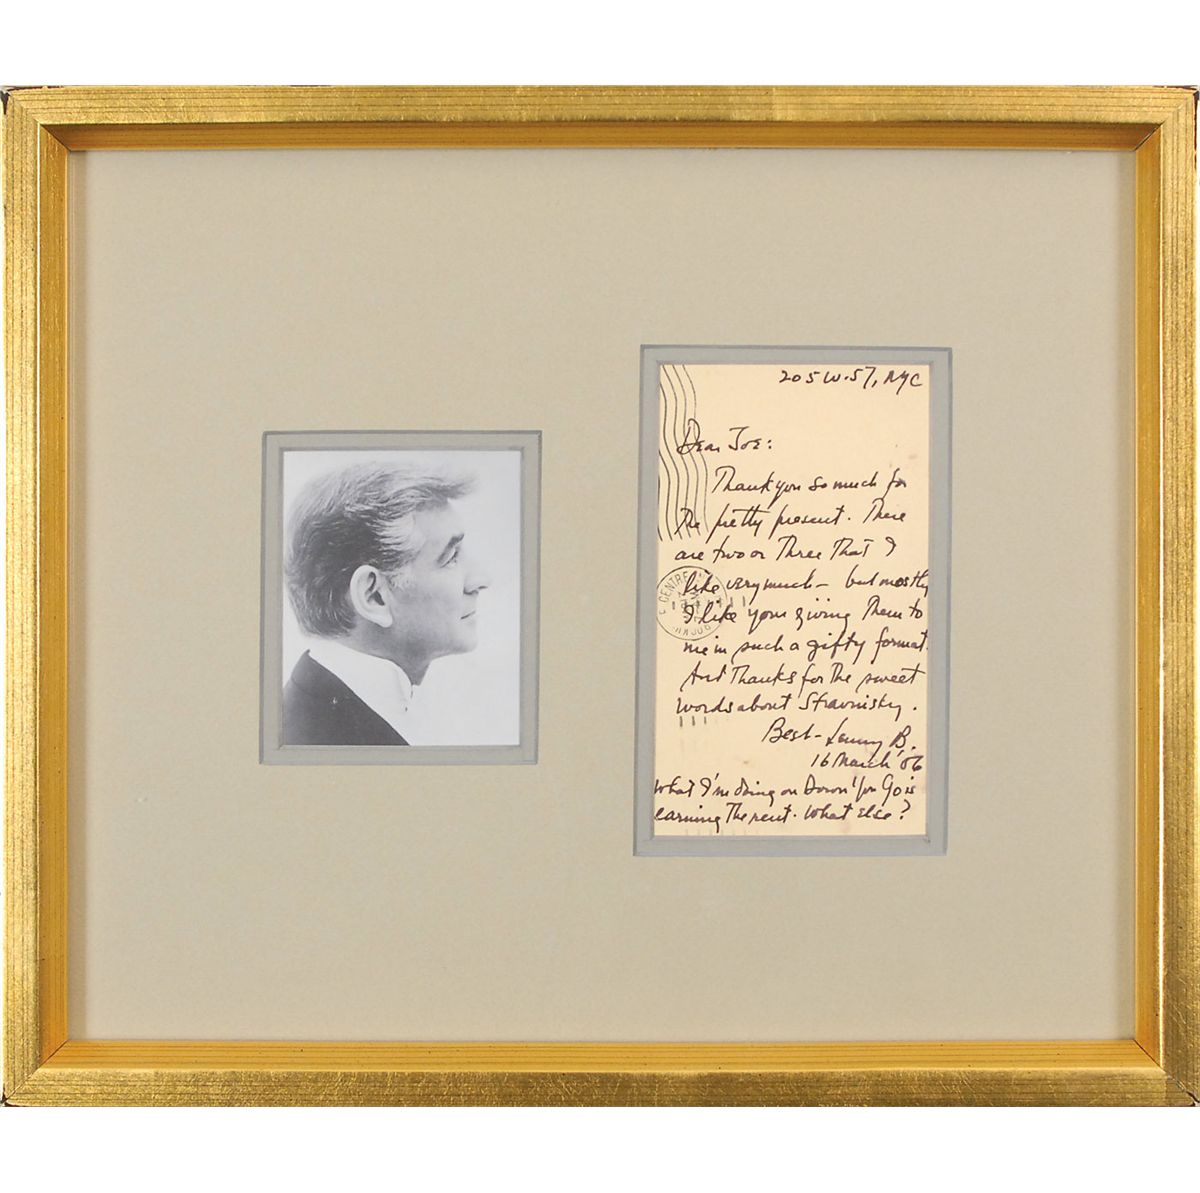 205 W. 57, NYC
Dear Joe:
Thank you so much for
the pretty present. There
are two or three that I
like very much - but mostly
I like your giving them to
me in such a gifty format.
And thanks for the sweet
words about Stravinsky.
Best - Lenny B.
16 March '66
What I'm doing on Down You Go is
earning the rent. What else?
CENTRE